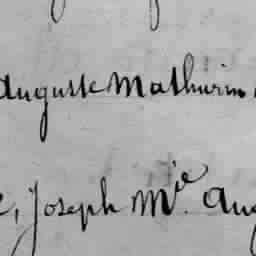 Auguste Mathurin
, Joseph M.ie Aug